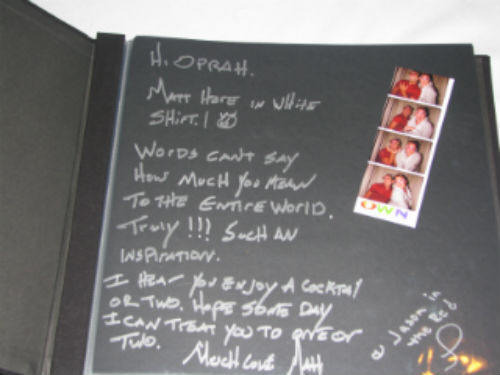 Hi OPRAH.
MATT HERE IN WHITE
SHIRT!
WORDS CAN'T SAY
HOW MUCH YOU MEAN
TO THE ENTIRE WORLD.
Truly !!! SUCH AN
INSPIRATION.
I HEAR YOU ENJOY A COCKTAIL
OR TWO. HOPE SOME DAY
I CAN TREAT YOU TO ONE OR
TWO.
Much Love Matt
OWN
Jason in
the Red